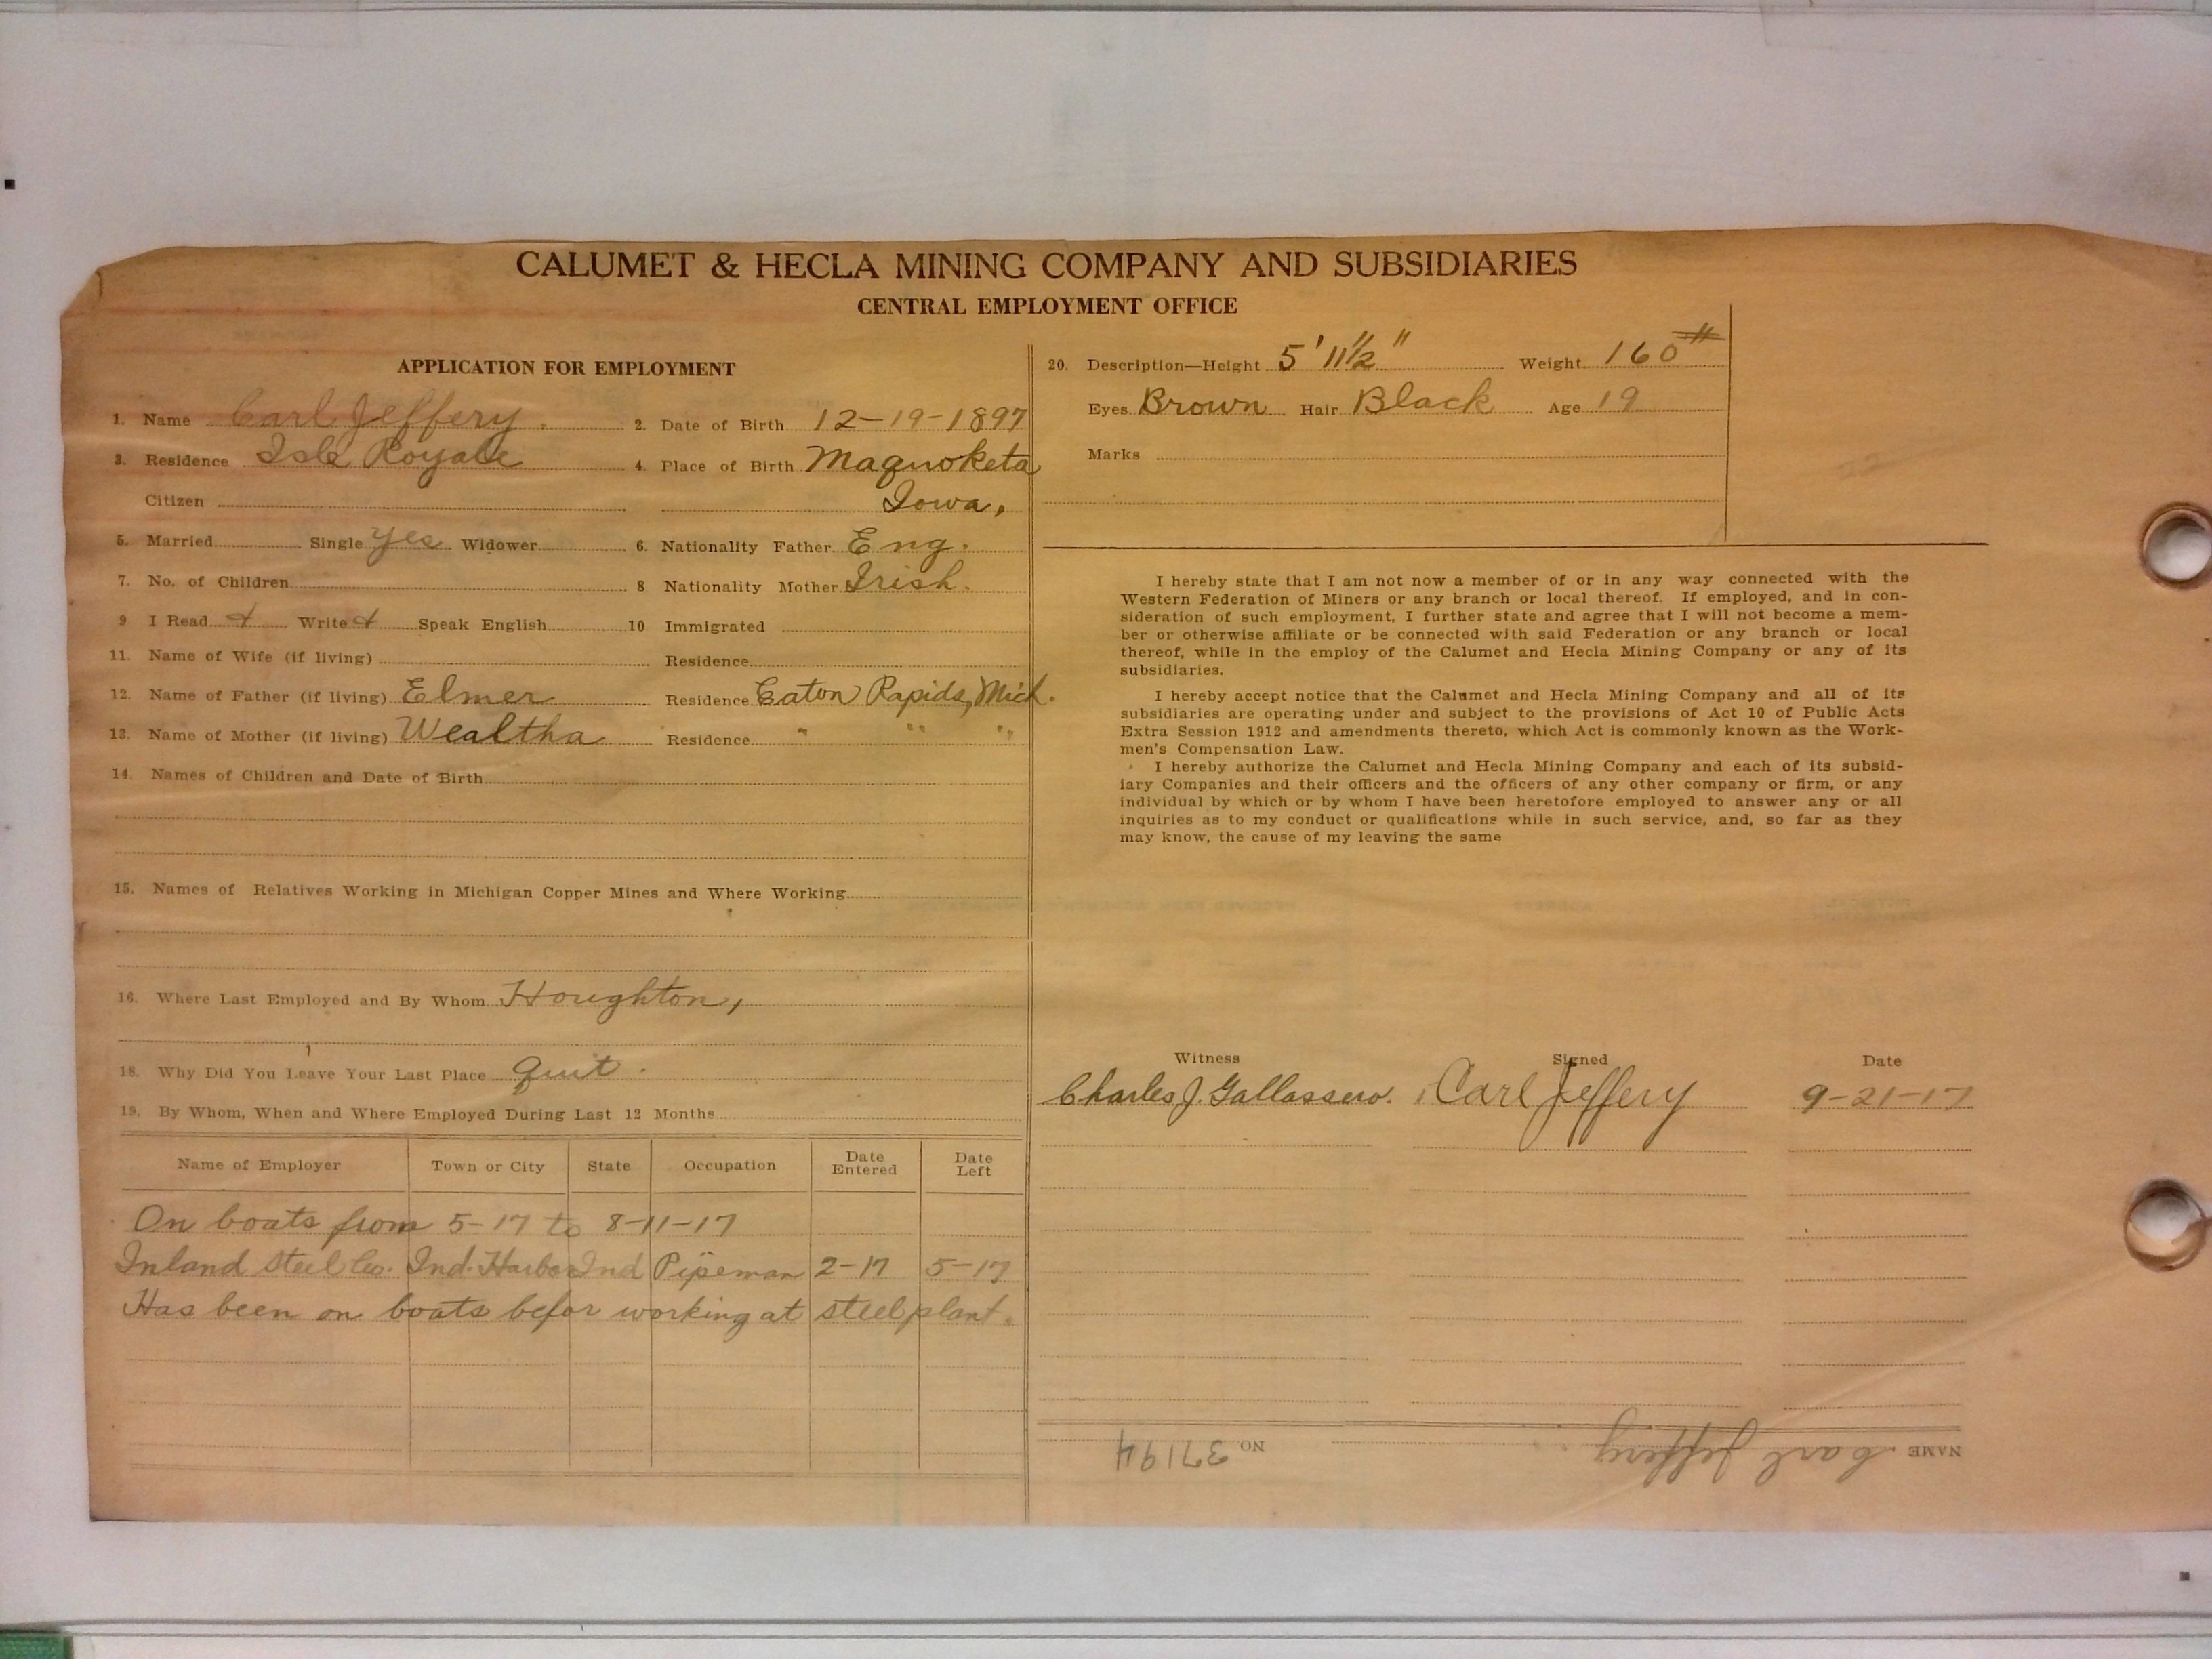 CALUMET & HECLA MINING COMPANY AND SUBSIDIARIES
CENTRAL EMPLOYMENT OFFICE
APPLICATION FOR EMPLOYMENT
1. Name Carl Jeffery. 2. Date of Birth 12-19-1897
3. Residence Isle Royale 4. Place of Birth Maquoketa
Citizen Iowa.
5. Married Single yes Widower 6. Nationality Father Eng.
7. No. of Children 8 Nationality Mother Irish.
9 I Read Write Speak English 10 Immigrated
11. Name of Wife (if living) Residence
12. Name of Father (if living) Elmer Residence Eaton Rapids, Mich.
13. Name of Mother (if living) Wealtha Residence " " "
14. Names of Children and Date of Birth
15. Names of Relatives Working in Michigan Copper Mines and Where Working
16. Where Last Employed and By Whom Houghton,
18. Why Did You Leave Your Last Place quit.
19. By Whom, When and Where Employed During Last 12 Months
Name of Employer Town or City State Occupation Date Entered Date Left
On boats from 5-17 to 8-11-17
Inland Steel Co. Ind. Harbor Ind Pipeman 2-17 5-17
Has been on boats befor working at steel plant.
20. Description—Height 5' 11 1/2" Weight 160 #
Eyes Brown Hair Black Age 19
Marks
I hereby state that I am not now a member of or in any way connected with the
Western Federation of Miners or any branch or local thereof. If employed, and in con-
sideration of such employment, I further state and agree that I will not become a mem-
ber or otherwise affiliate or be connected with said Federation or any branch or local
thereof, while in the employ of the Calumet and Hecla Mining Company or any of its
subsidiaries.
I hereby accept notice that the Calumet and Hecla Mining Company and all of its
subsidiaries are operating under and subject to the provisions of Act 10 of Public Acts
Extra Session 1912 and amendments thereto, which Act is commonly known as the Work-
men's Compensation Law.
I hereby authorize the Calumet and Hecla Mining Company and each of its subsid-
iary Companies and their officers and the officers of any other company or firm, or any
individual by which or by whom I have been heretofore employed to answer any or all
inquiries as to my conduct or qualifications while in such service, and, so far as they
may know, the cause of my leaving the same
Witness Signed Date
Charles J. Carl Jeffery 9-21-17
NAME Carl Jeffery NO 37194